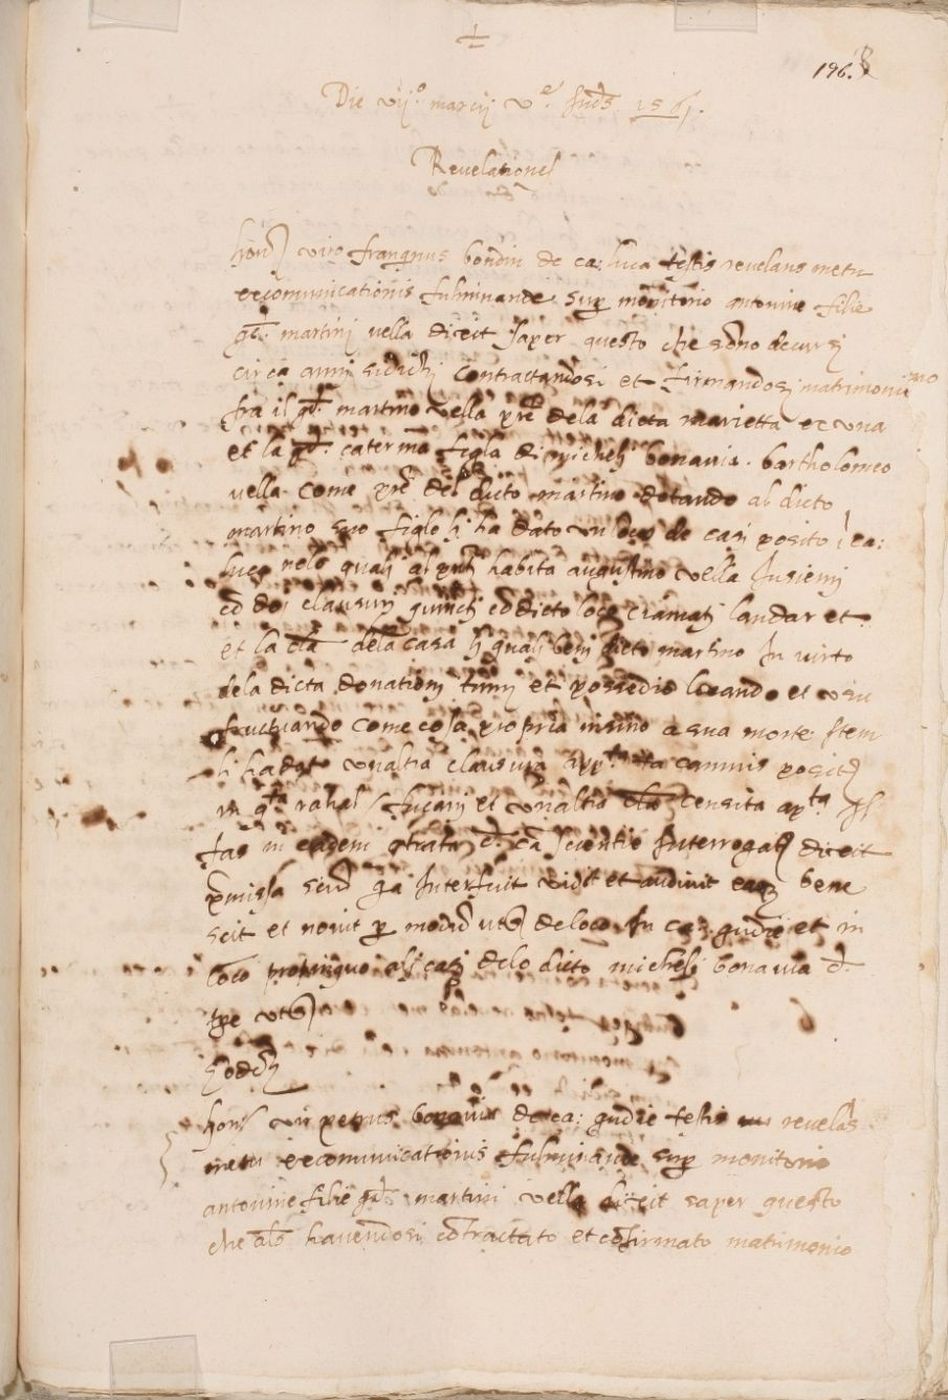 196.
Die vij.º marcij v.e Ind.s 1561.
Revelationes
hon. viro franginus bondin de ca: luca testis revelans metu
excomunicationis fulminande sup monitorio antonine filie
qd. martini vella dixit saper questo che sono decursi
circa anni sidichi contractandosi et firmandosi matrimonio
fra il qd. martino vella pre dela dicta marietta ex una
et la qd. caterina figla di micheli bonavia. bartholomeo
vella come pre del dicto martino dotando al dicto
martino suo figlo li ha dato un loco de casi posito i ca:
luca nele quali al pnti habita augustino vella Insiemi
cd doi clausuri quindi cd dicto loco cramati landar et
et la cla dela casa li quali beni dicto martino In virto
dela dicta donationi tinni et possedio locando et usu
fructuando come cosa propria insino a sua morte Item
li ha dato unaltra clausura ta camnis posita
in qta rahal et unaltra cla censita
in eadem strata de ca scientie Interrogat dixit
pmissa scire qa Interfuit vidit et audivit eaq bene
scit et novit p modu ut de loco In ca: gudie et in
loco propinquo ali casi delo dicto micheli bonavia d.
tpe ut
Eodem
hon vir petrus bonavia de ca: gudie testis revelas
metu excomunicationis fulminande sup monitorio
antonine filie qd. martini vella dixit saper questo
che als havendosi cotractato et cofirmato matrimonio